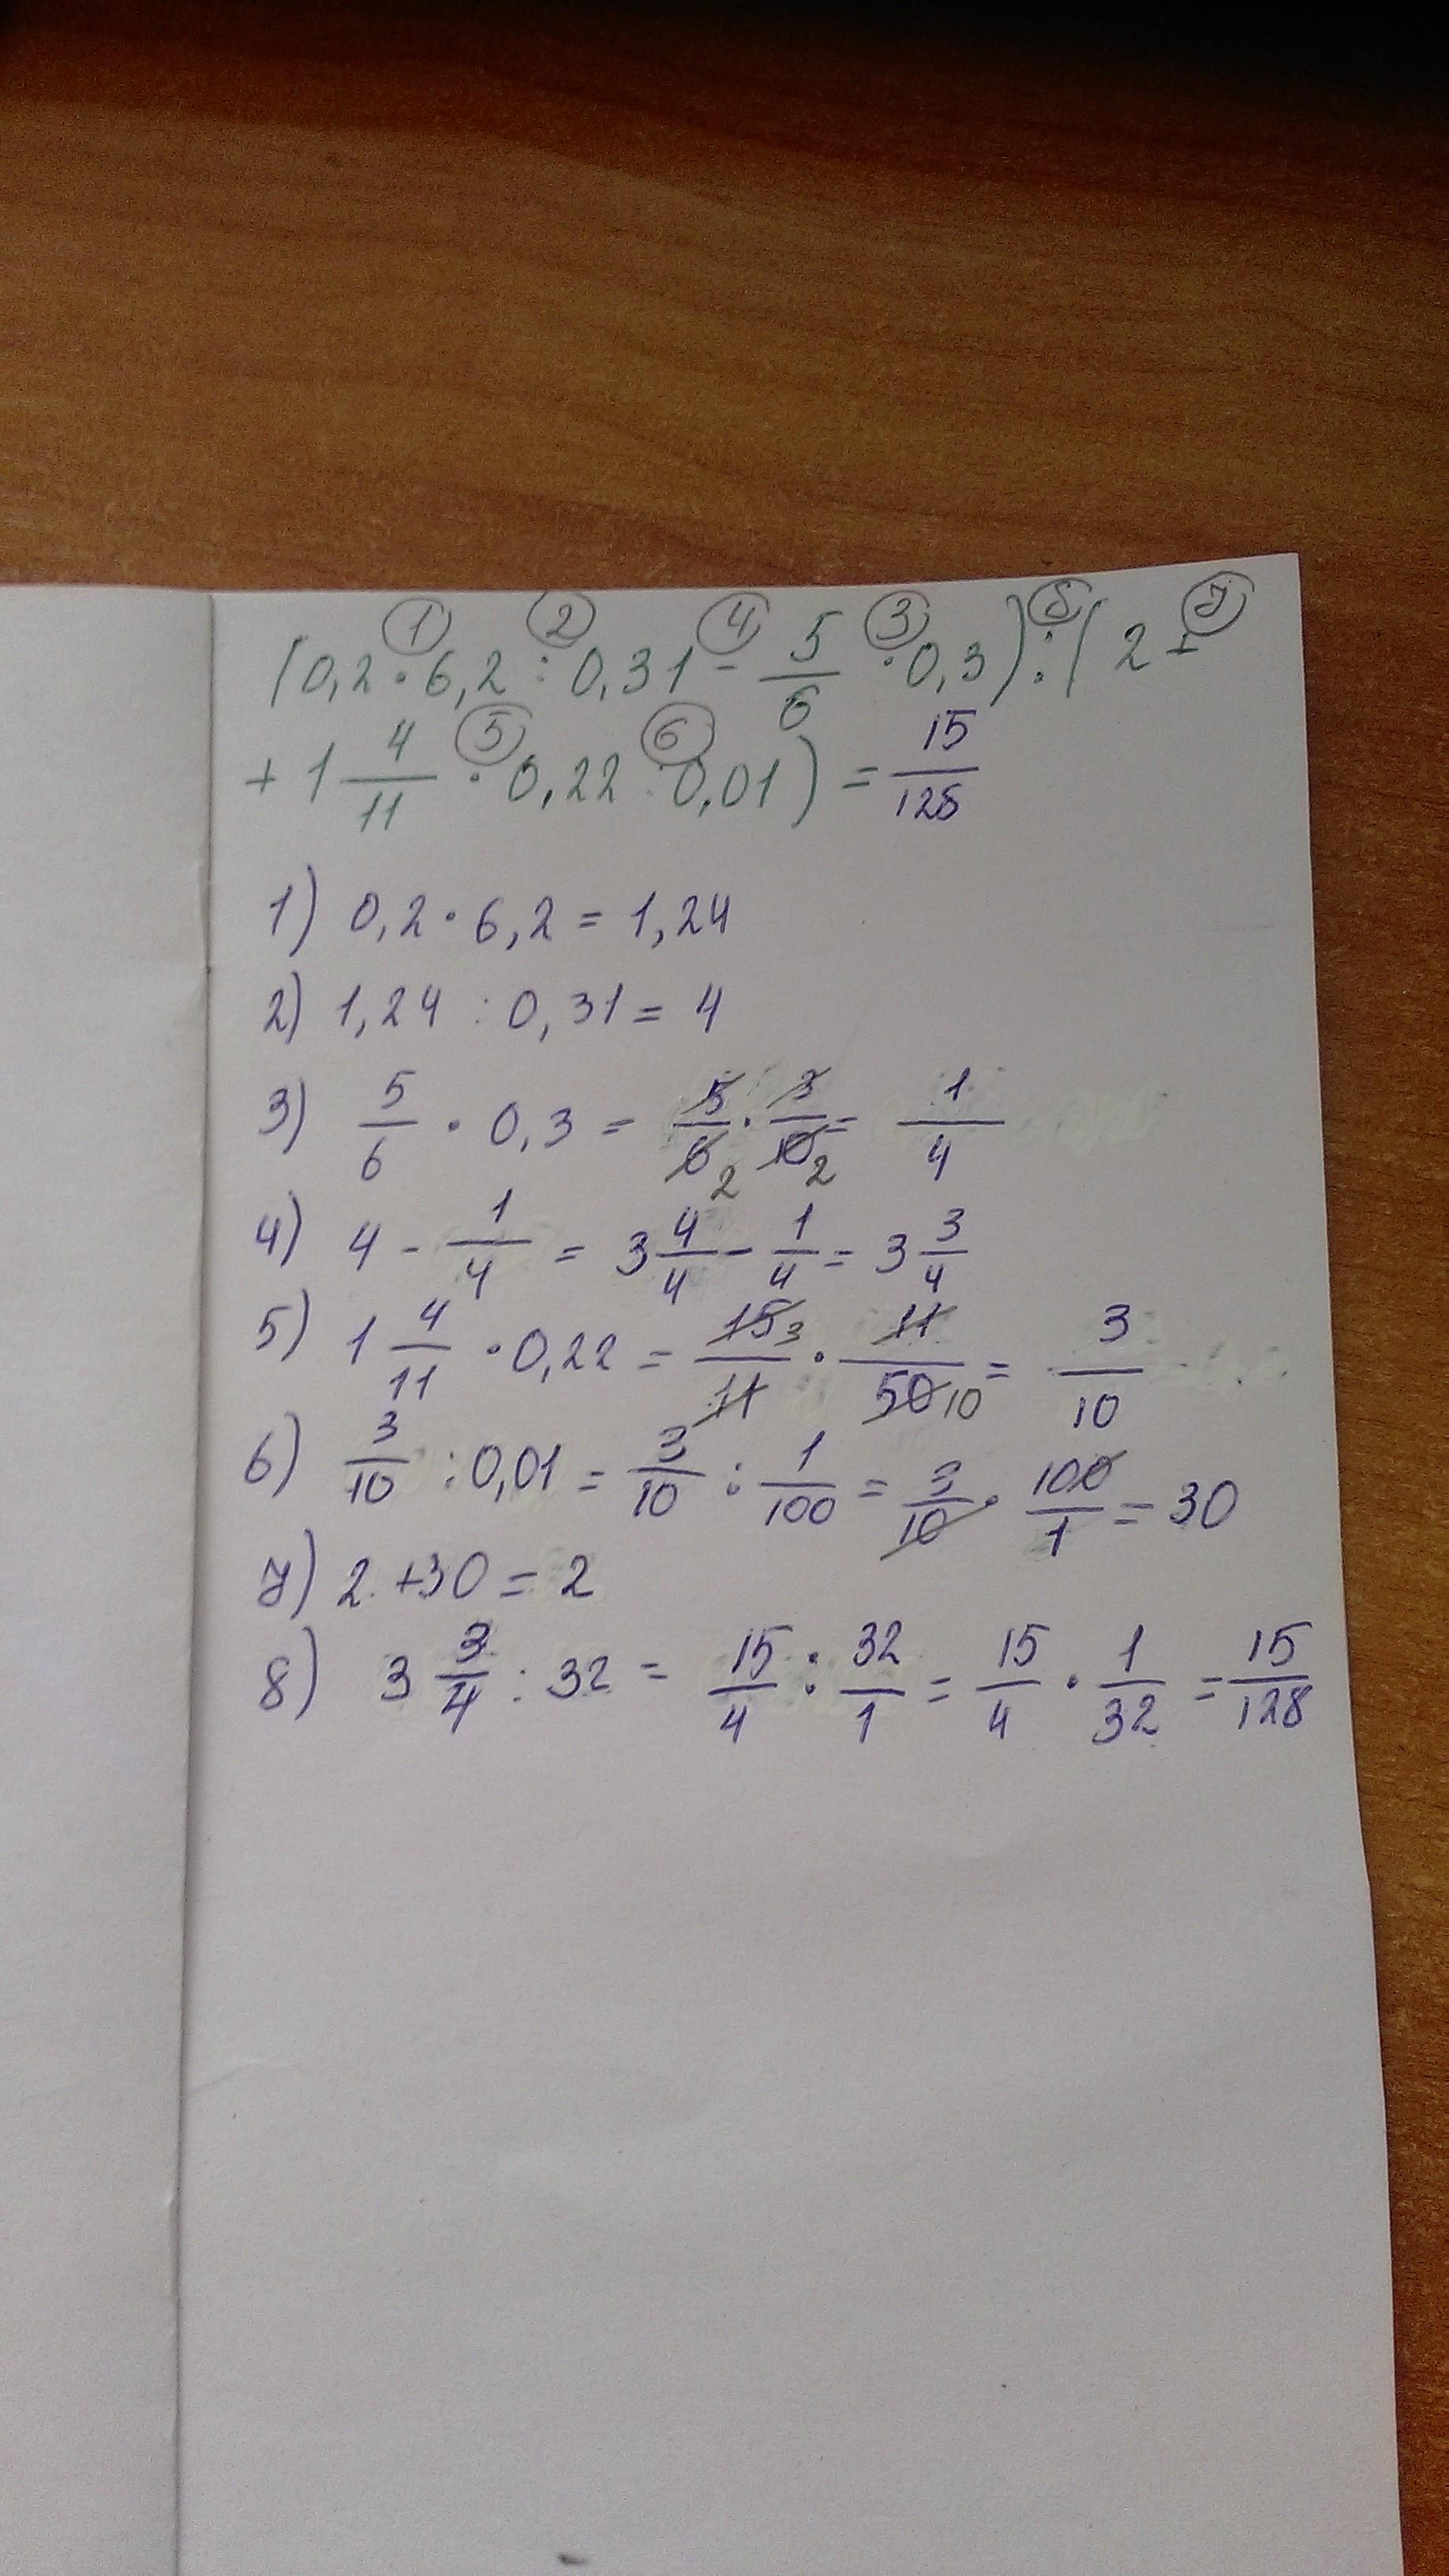 (0,2 · 6,2 : 0,31 - 5/6 · 0,3) : (2 +
① ② ④ ③ ⑧ ⑦
+ 1 4/11 · 0,22 : 0,01) = 15/128
⑤ ⑥
1) 0,2 · 6,2 = 1,24
2) 1,24 : 0,31 = 4
3) 5/6 · 0,3 = 5/6 2 · 3/10 2 = 1/4
4) 4 - 1/4 = 3 4/4 - 1/4 = 3 3/4
5) 1 4/11 · 0,22 = 15 3/11 · 11/50 10 = 3/10
6) 3/10 : 0,01 = 3/10 : 1/100 = 3/10 · 100/1 = 30
7) 2 + 30 = 2
8) 3 3/4 : 32 = 15/4 : 32/1 = 15/4 · 1/32 = 15/128